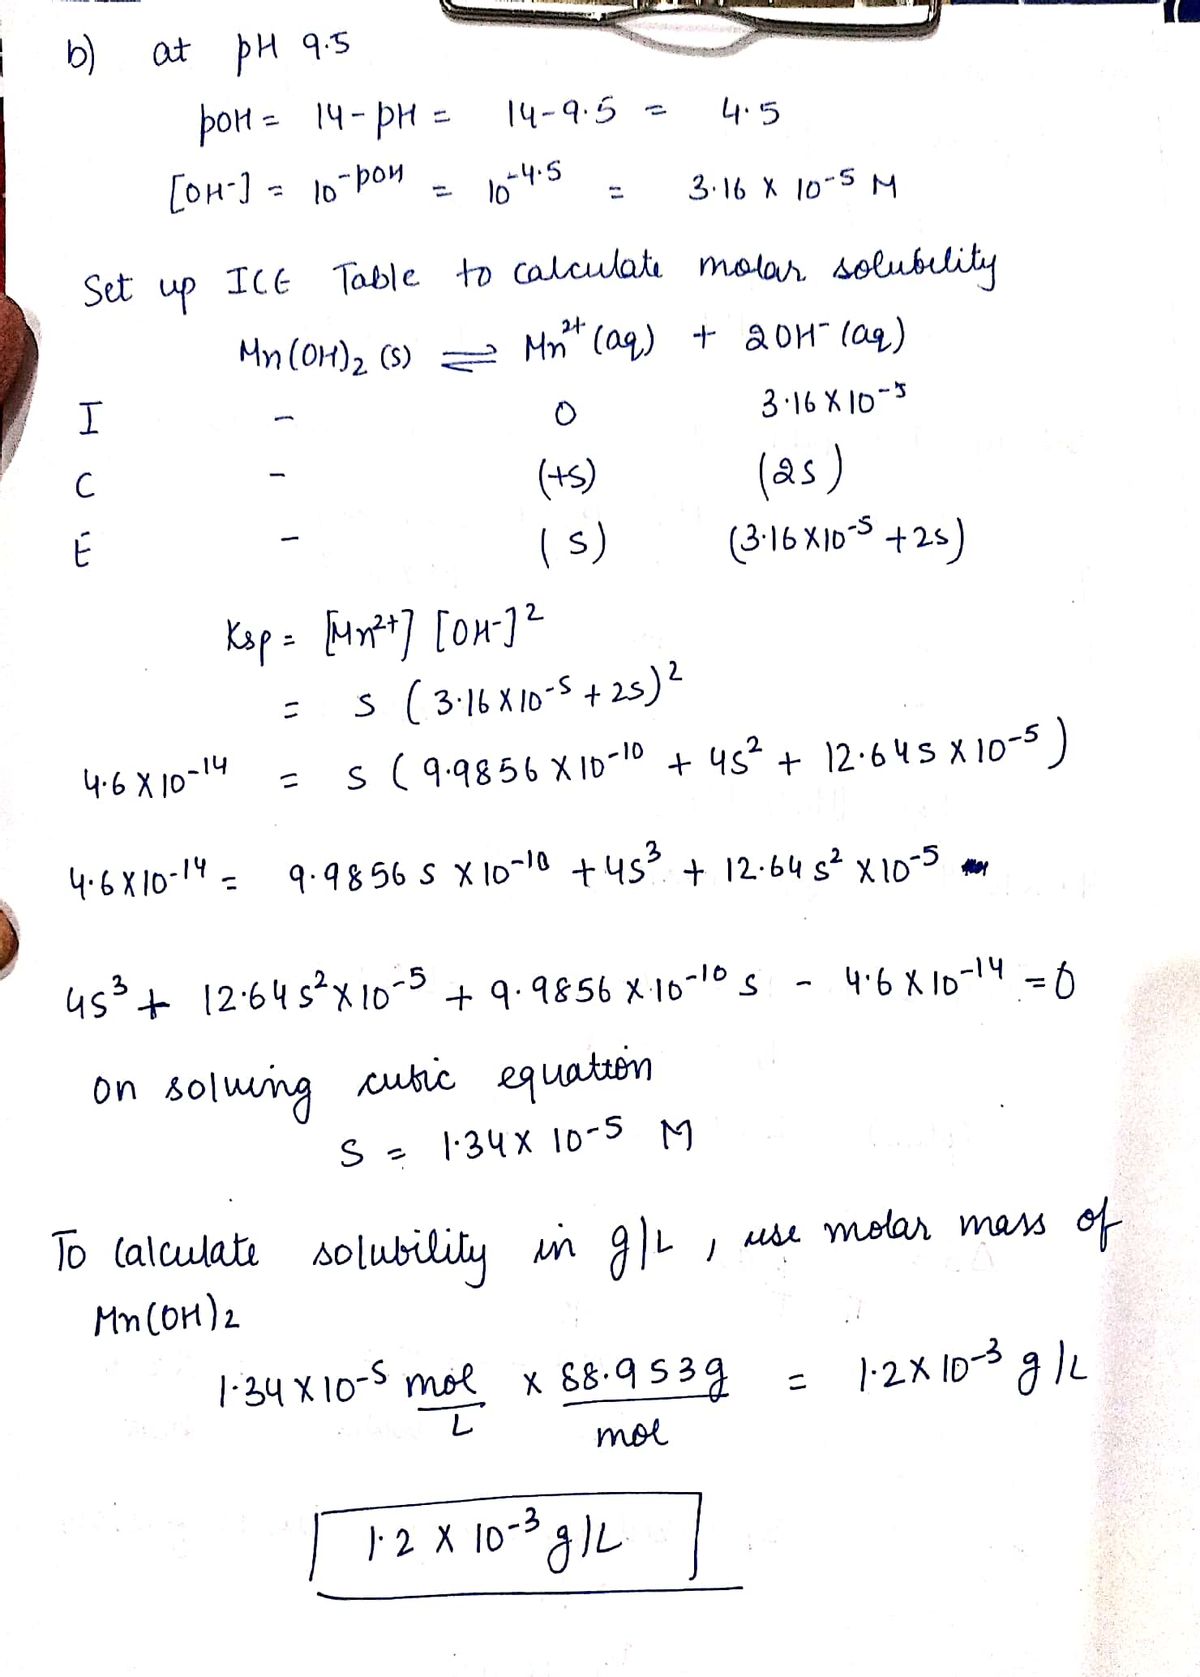 b) at pH 9.5
pOH = 14-pH = 14-9.5 = 4.5
[OH-] = 10^-pOH = 10^-4.5 = 3.16 X 10^-5 M
Set up ICE Table to calculate molar solubility
Mn(OH)2 (s) ⇌ Mn^2+ (aq) + 2OH^- (aq)
I - 0 3.16 X 10^-5
C - (+s) (2s)
E - (s) (3.16 X 10^-5 + 2s)
Ksp = [Mn^2+] [OH-]^2
= s (3.16 X 10^-5 + 2s)^2
4.6 X 10^-14 = s (9.9856 X 10^-10 + 4s^2 + 12.64s X 10^-5)
4.6 X 10^-14 = 9.9856 s X 10^-10 + 4s^3 + 12.64 s^2 X 10^-5
4s^3 + 12.64 s^2 X 10^-5 + 9.9856 X 10^-10 s - 4.6 X 10^-14 = 0
on solving cubic equation
S = 1.34 X 10^-5 M
To calculate solubility in g/L, use molar mass of
Mn(OH)2
1.34 X 10^-5 mol/L x 88.953g/mol = 1.2 X 10^-3 g/L
1.2 X 10^-3 g/L